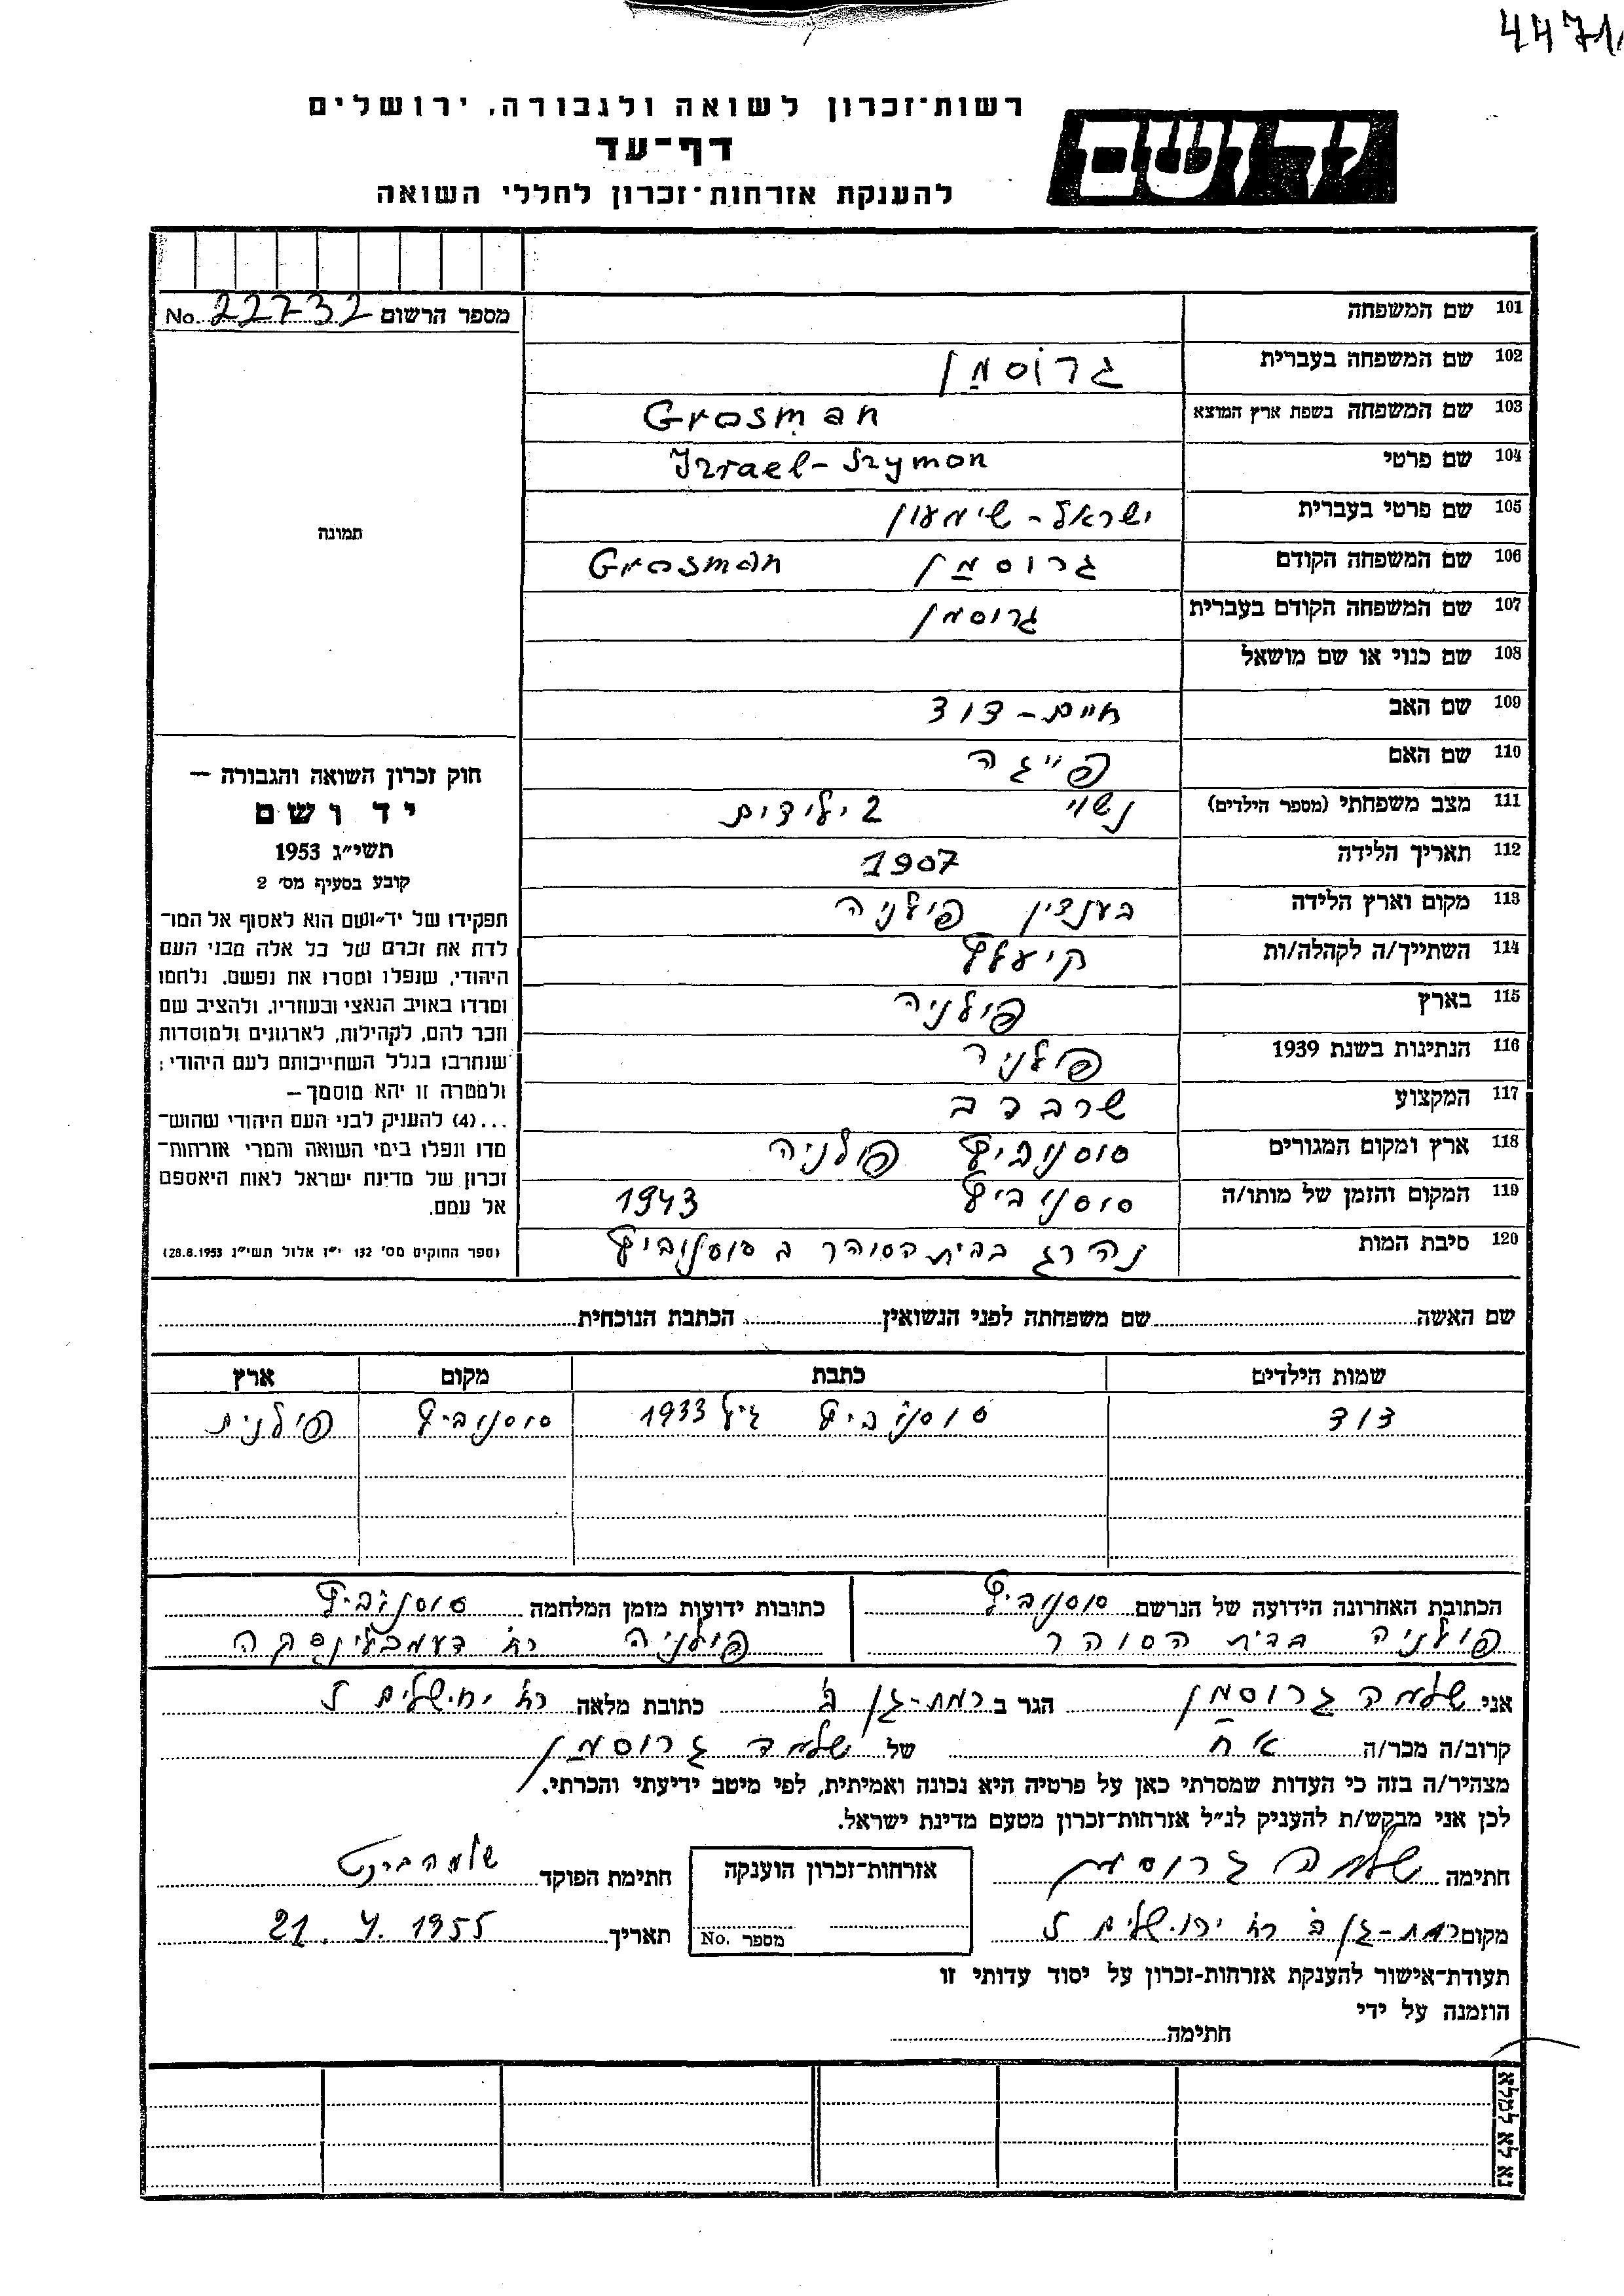 4471
רשות־זכרון לשואה ולגבורה, ירושלים
דף־עד
להענקת אזרחות־זכרון לחללי השואה
יד ושם
מספר הרשום No. 22732
תמונה
101 שם המשפחה
102 שם המשפחה בעברית גרוסמן
103 שם המשפחה בשפת ארץ המוצא Grosman
104 שם פרטי Izrael-Szymon
105 שם פרטי בעברית ישראל-שימעון
106 שם המשפחה הקודם גרוסמן Grosman
107 שם המשפחה הקודם בעברית גרוסמן
108 שם כנוי או שם מושאל
109 שם האב חיים-דוד
110 שם האם פייגה
111 מצב משפחתי (מספר הילדים) נשוי 2 ילידים
112 תאריך הלידה 1907
113 מקום וארץ הלידה בענדין פולניה
114 השתייך/ה לקהלה/ות קיעלץ
115 בארץ פולניה
116 הנתינות בשנת 1939 פולניה
117 המקצוע שרברב
118 ארץ ומקום המגורים סוסנוביץ פולניה
119 המקום והזמן של מותו/ה סוסנוביץ 1943
120 סיבת המות נהרג בבית הסוהר ב סוסנוביץ
חוק זכרון השואה והגבורה —
יד ושם
תשי״ג 1953
קובע בסעיף מס׳ 2
תפקידו של יד־ושם הוא לאסוף אל המו־
לדת את זכרם של כל אלה מבני העם
היהודי, שנפלו ומסרו את נפשם, נלחמו
ומרדו באויב הנאצי ובעוזריו, ולהציב שם
וזכר להם, לקהילות, לארגונים ולמוסדות
שנחרבו בגלל השתייכותם לעם היהודי;
ולמטרה זו יהא מוסמך —
...(4) להעניק לבני העם היהודי שהוש־
מדו ונפלו בימי השואה והמרי אזרחות־
זכרון של מדינת ישראל לאות היאספם
אל עמם.
(ספר החוקים מס׳ 132 י״ז אלול תשי״ג 28.8.1953)
שם האשה שם משפחתה לפני הנשואין הכתבת הנוכחית
שמות הילדים כתבת מקום ארץ
דוד סוסנוביץ גיל 1933 סוסנוביץ פולנית
הכתובת האחרונה הידועה של הנרשם סוסנוביץ
פולניה בבית הסוהר
כתובות ידועות מזמן המלחמה סוסנוביץ
פולניה רח׳ דעמבלינסקה
אני שלמה גרוסמן הגר ב רמת-גן ב׳ כתובת מלאה רח׳ ירושלים 5
קרוב/ה מכר/ה אח של שלמה גרוסמן
מצהיר/ה בזה כי העדות שמסרתי כאן על פרטיה היא נכונה ואמיתית, לפי מיטב ידיעתי והכרתי.
לכן אני מבקש/ת להעניק לנ״ל אזרחות־זכרון מטעם מדינת ישראל.
חתימה שלמה גרוסמן
אזרחות־זכרון הוענקה
מספר No.
חתימת הפוקד
מקום רמת-גן ב׳ רח׳ ירושלים 5
תאריך 21. 4. 1955
תעודת־אישור להענקת אזרחות־זכרון על יסוד עדותי זו
הוזמנה על ידי
חתימה
נא לא למלא